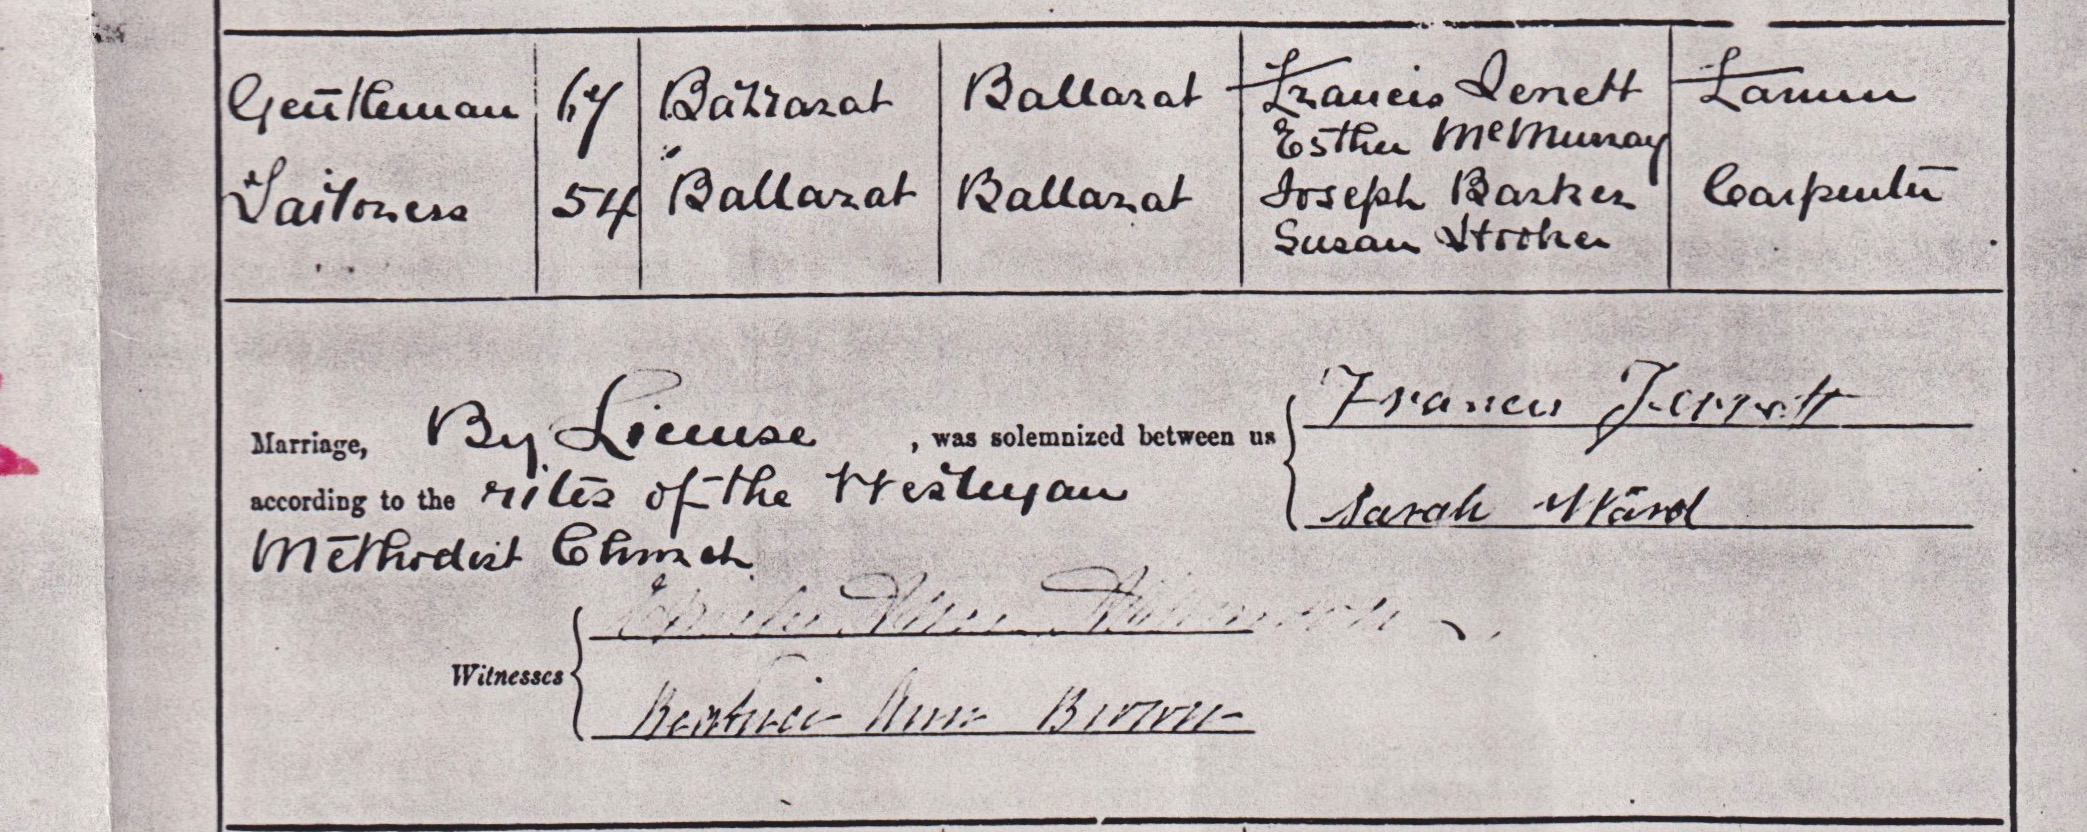 Gentleman 67 Ballarat Ballarat Francis Jerrett Farmer
Esther McMurray
Tailoress 54 Ballarat Ballarat Joseph Barker Carpenter
Susan Hooker
Francis Jerrett
Marriage, By License , was solemnized between us
according to the rites of the Wesleyan
Sarah Ward
Methodist Church
Witnesses
Beatrice Ann Brown